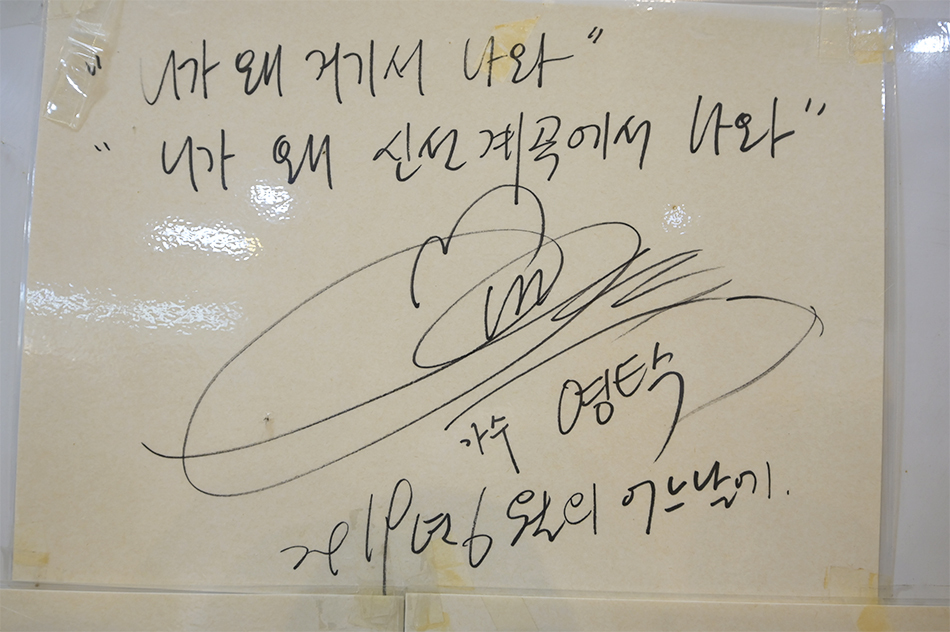 "니가 왜 거기서 나와"
"니가 왜 신선계곡에서 나와"
가수 영탁
2019년 6월의 어느날에.